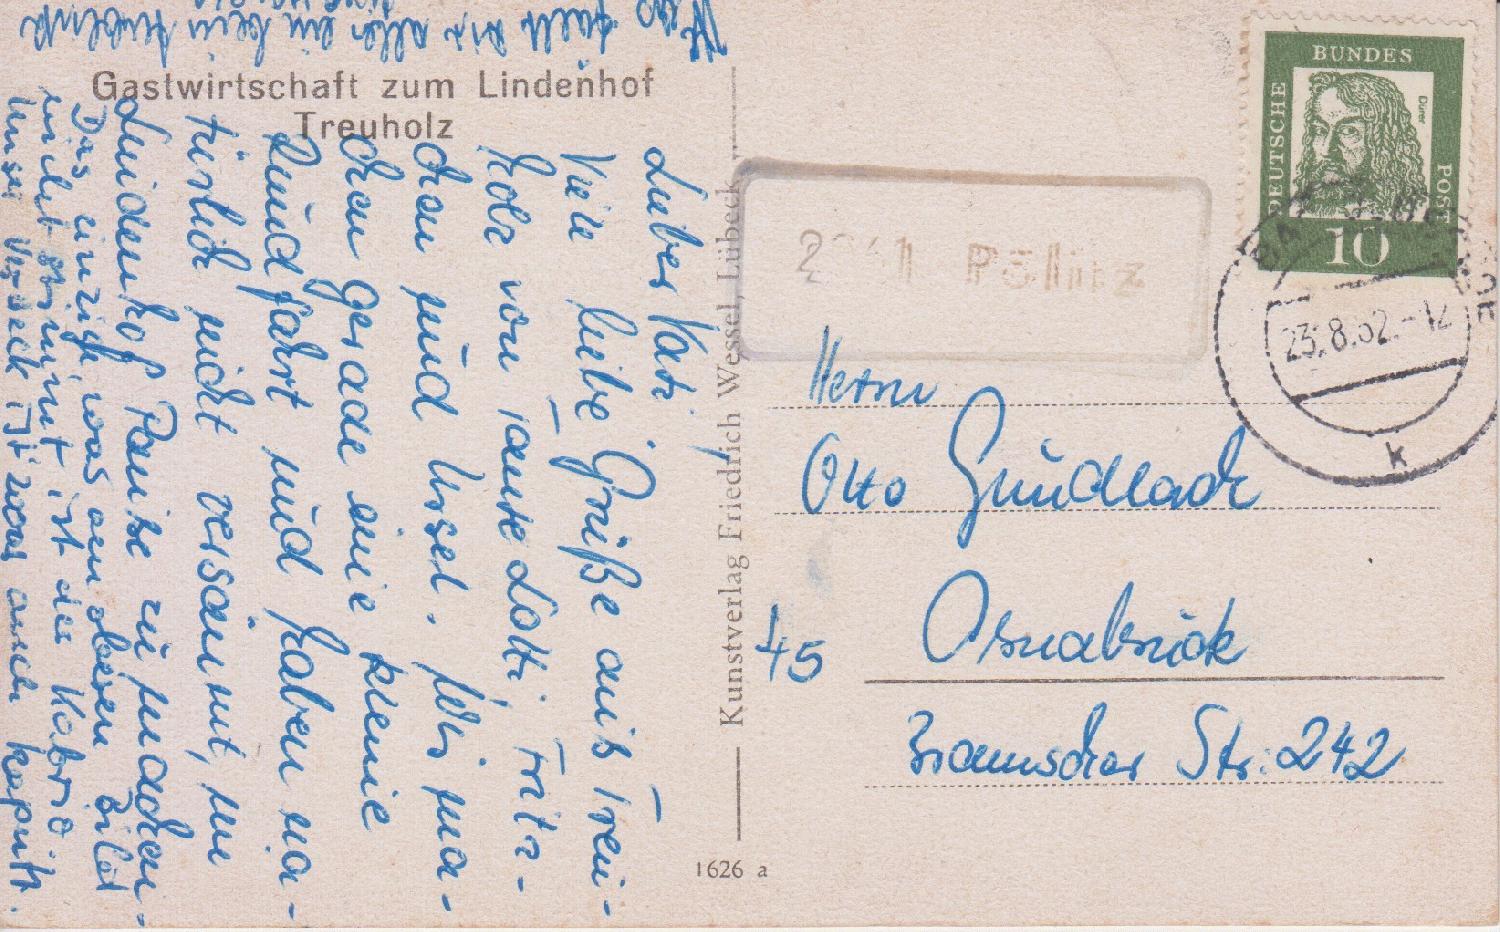 Gastwirtschaft zum Lindenhof
Treuholz
Lieber Vati,
Viele liebe Grüße aus Treu-
holz von Tante Lotti, Fritz-
chen und Ursel. Wir ma-
chen gerade eine kleine
Rundfahrt und haben na-
türlich nicht versäumt, im
Lindenhof Pause zu machen.
Das einzige was an diesem Bild
nicht stimmt ist der Kabrio
Unser Verdeck ist zwar auch kaputt.
Kunstverlag Friedrich Wessel, Lübeck
1626 a
DEUTSCHE BUNDES POST
Dürer
10
Pölitz
23.8.62.-12
k
Herrn
Otto Gundlach
45 Osnabrück
Bramscher Str. 242